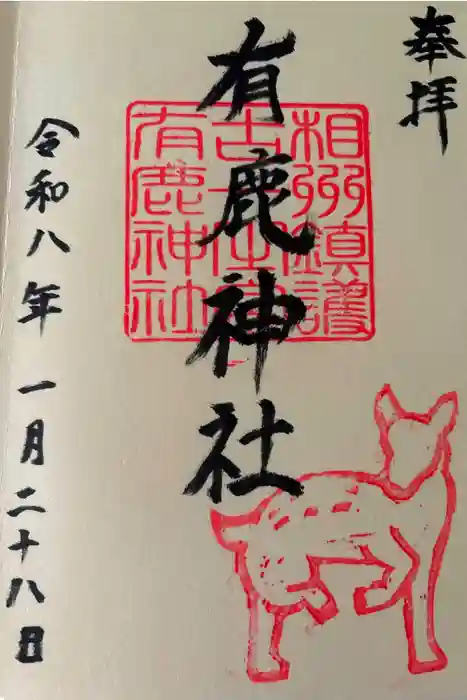 奉拝
有鹿神社
相州鎮護
有鹿神社
令和八年 一月二十八日